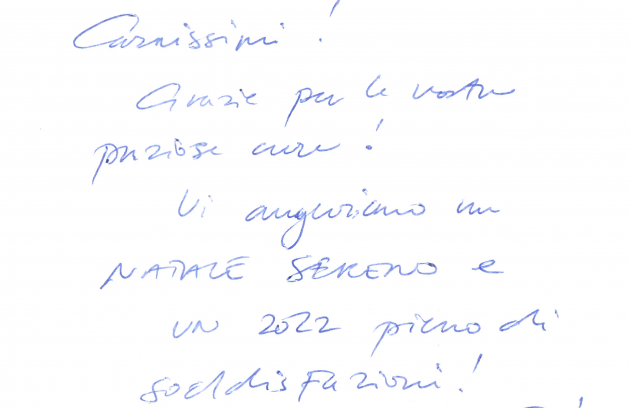 Carissimi!
Grazie per le vostre
preziose cure!
Vi auguriamo un
NATALE SERENO e
UN 2022 pieno di
soddisfazioni!